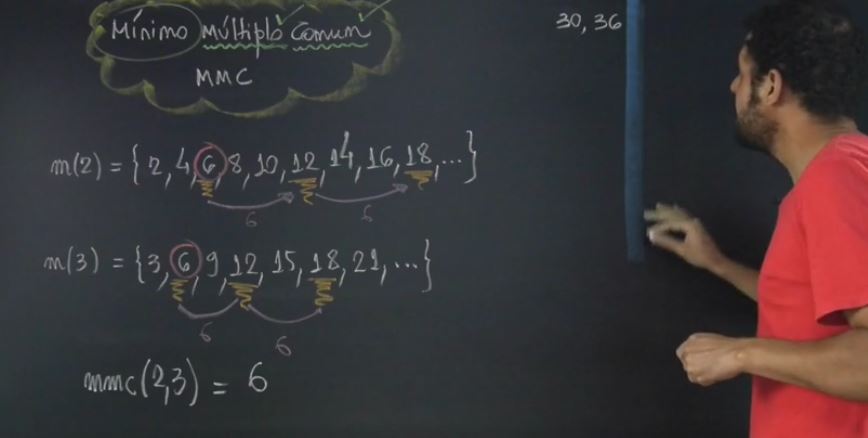 Mínimo Múltiplo Comum
MMC
30, 36
m(2) = {2, 4, 6, 8, 10, 12, 14, 16, 18, ...}
6 6
m(3) = {3, 6, 9, 12, 15, 18, 21, ...}
6 6
mmc(2,3) = 6